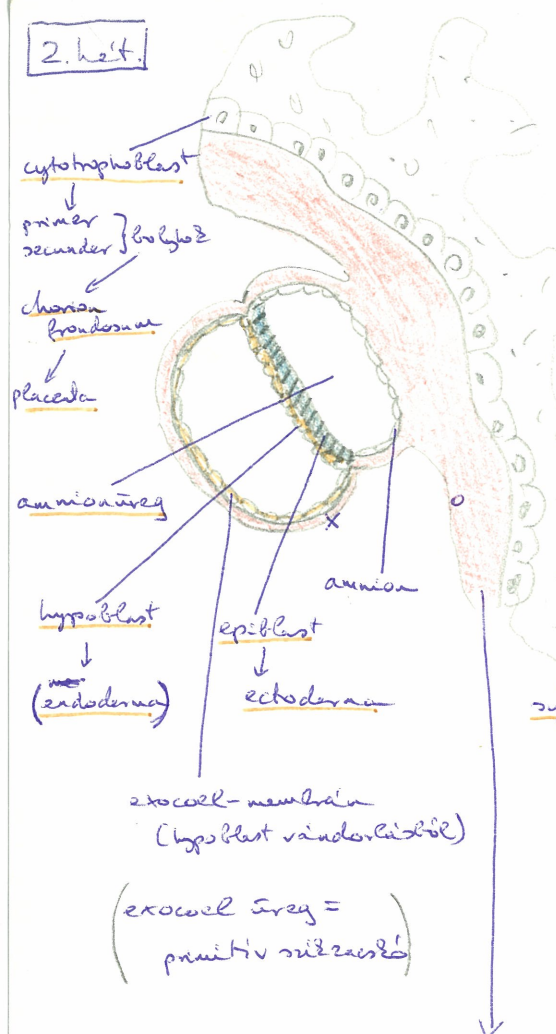 2. hét.
cytotrophoblast
primer
secunder } bolyhok
chorion
frondosum
placenta
amnionüreg
x
o
amnion
hypoblast
epiblast
(endoderma)
ectoderma
exocoel-membrán
(hypoblast vándorlásból)
(exocoel üreg =
primitív szikzacskó)